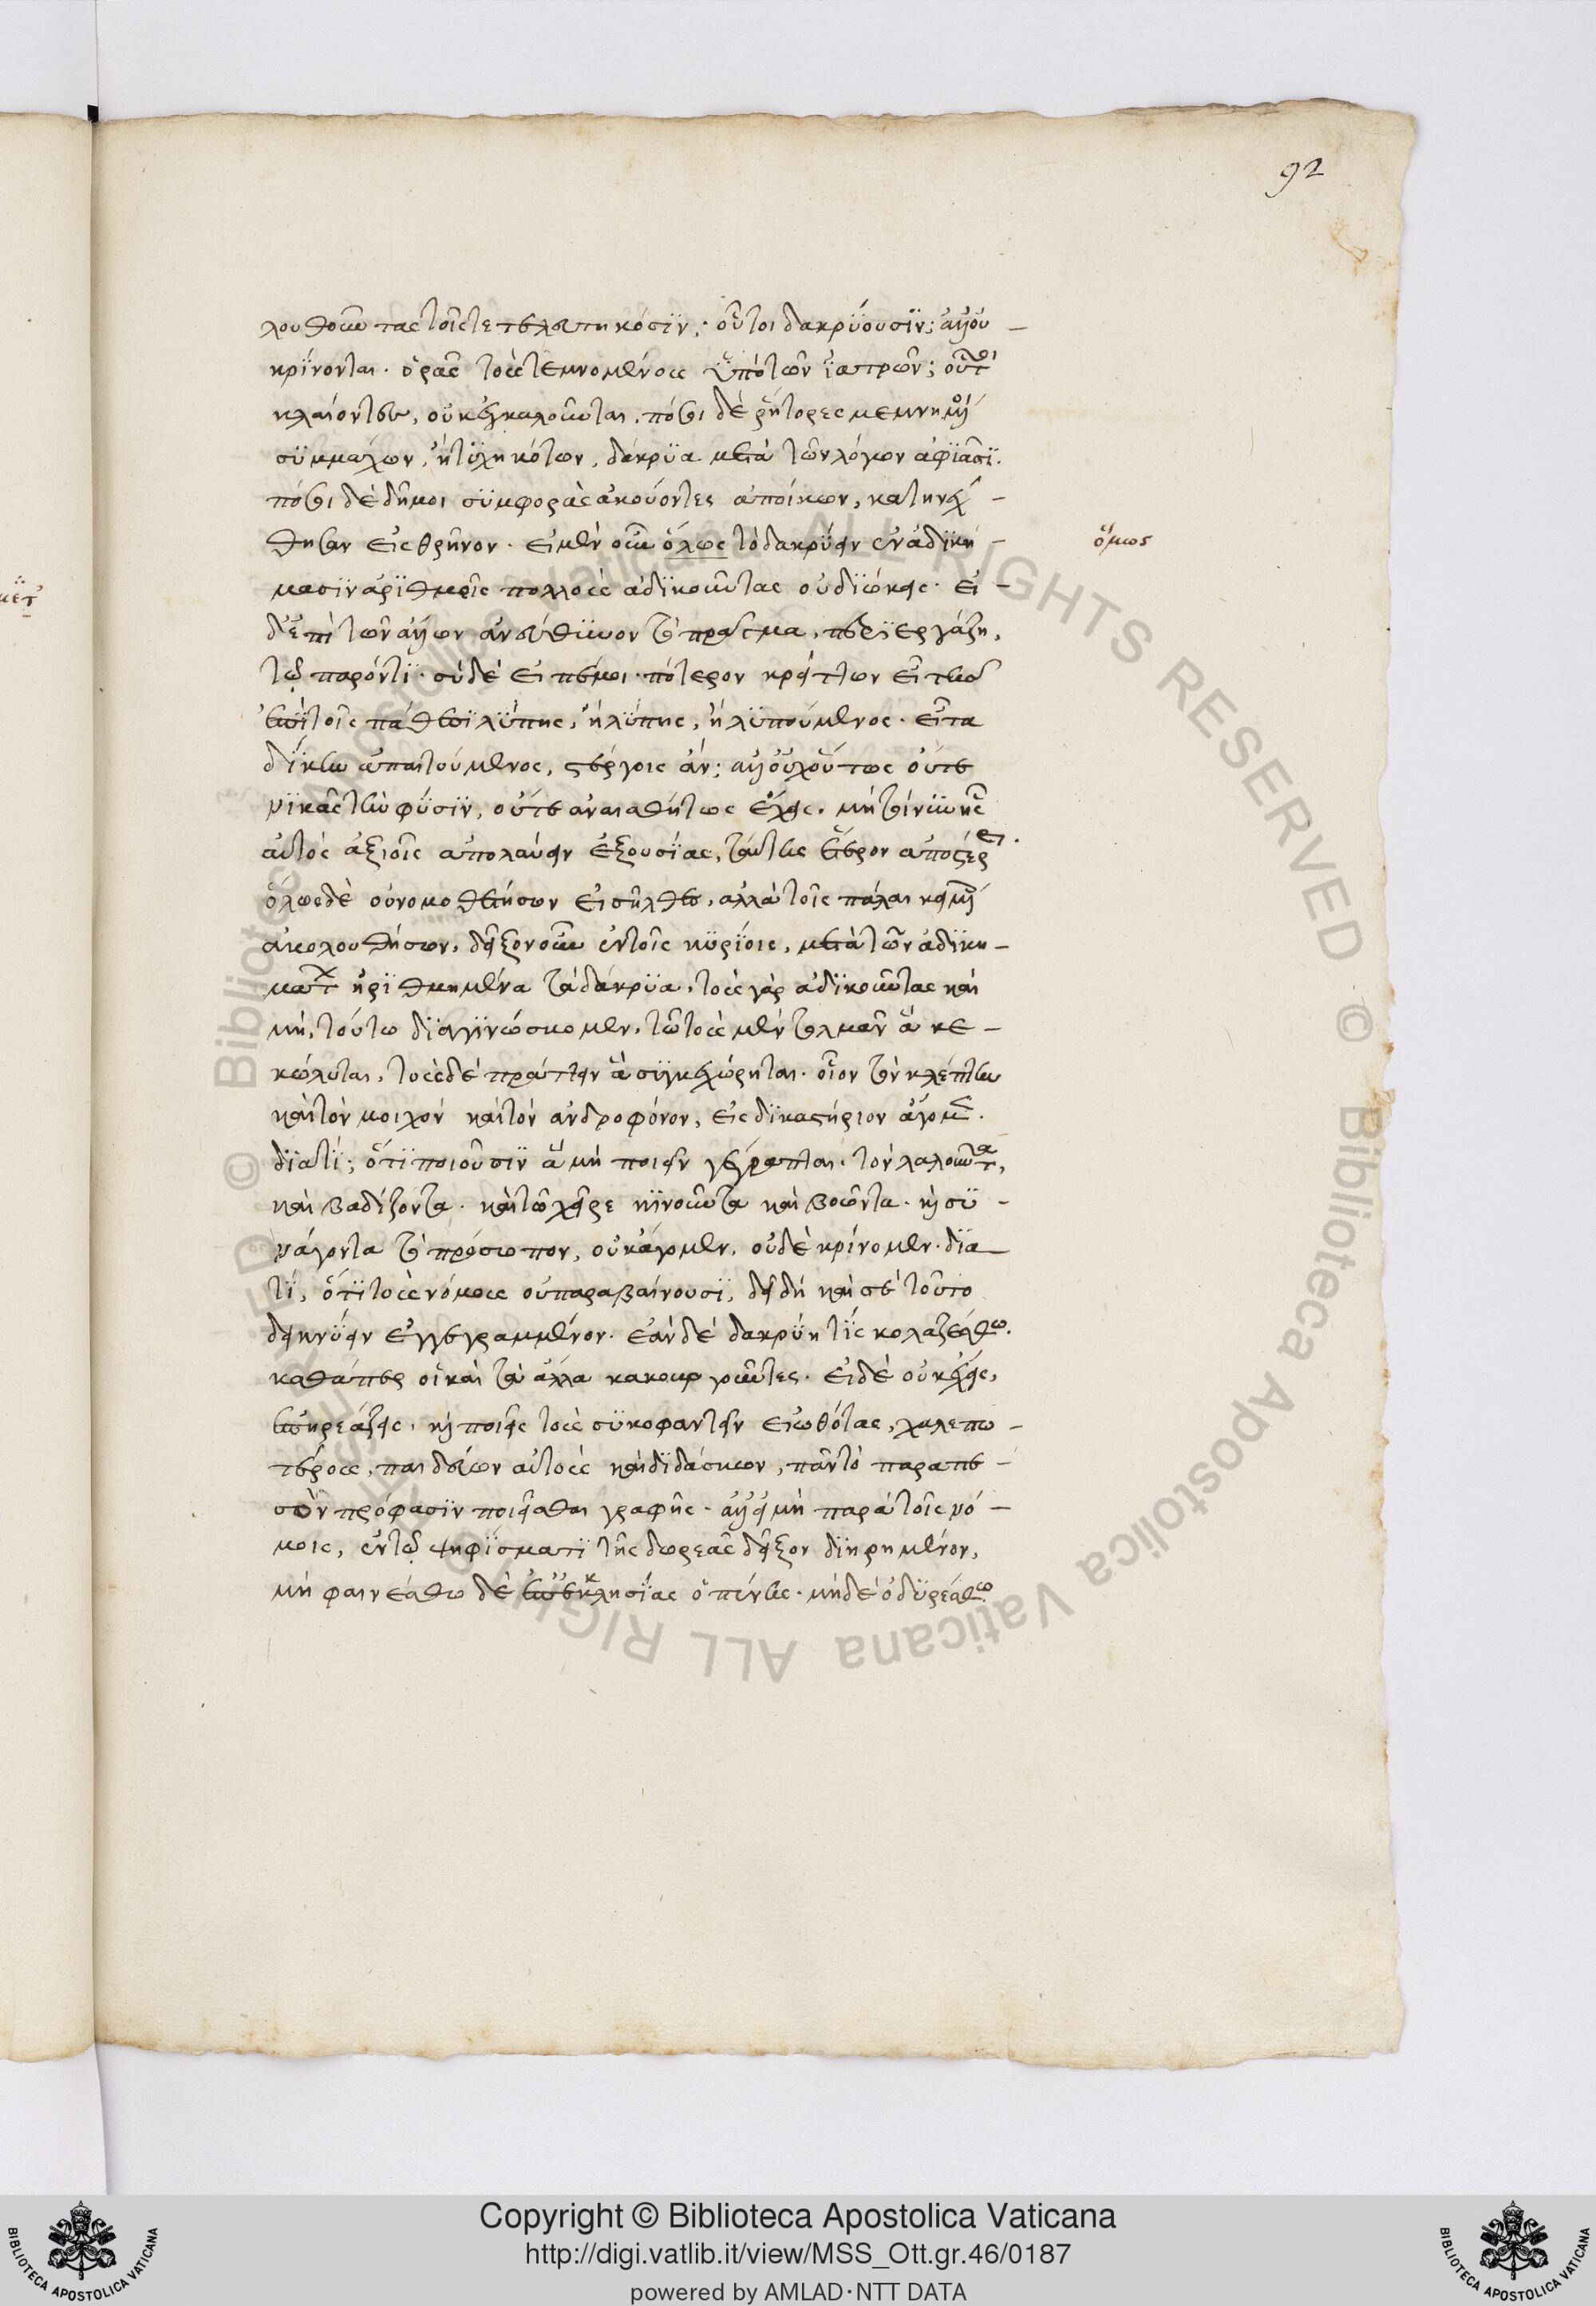 92
λουθοῦντας τοῖς τετελευτηκόσϊν· οὗτοι δακρΰουσϊν; ἀλλ' οὐ –
κρίνονται. ὁρᾶς τοὺς τεμνομένους ὑπὸ τῶν ϊατρῶν; οὗτοι
κλαίοντες, οὐκ ἐγκαλοῦνται. πόσοι δὲ ῥήτορες μεμνημένοι
συμμάχων ἠτυχηκότων, δάκρυα μετὰ τῶν λόγων ἀφιᾶσϊ.
πόσοι δὲ δῆμοι συμφορὰς ἀκούοντες ἀποίκων, κατηνέχ –
θησαν εἰς θρῆνον. εἰ μὲν οὖν ὅλως τὸ δακρύειν ἐν ἀδϊκή –
ὅμως
μασϊν ἀριθμεῖς πολλοὺς ἀδϊκοῦντας οὐ διώκεις. εἰ –
δ' ἐπὶ τῶν ἄλλων ἀνεύθυνον τὸ πρᾶγμα, περιεργάζη,
τῷ παρόντϊ. σὺ δὲ εἰπέ μοι. πότερον κρείττων εἶ τῆς
ἐπὶ τοῖς πάθεσι λύπης, ἢ λύπης, ἢ λυπούμενος. εἶτα
δίκην ἀπαιτούμενος, στέρξοις ἄν; ἀλλ' οὐχ οὕτως οὔτε
νικᾷς τὴν φύσϊν, οὔτε ἀναισθήτως ἔχεις. μὴ τοίνυν ἧς
αὐτὸς ἀξιοῖς ἀπολαύειν ἐξουσίας, ταύτης ἕτερον ἀποστέρει.
ὅλως δὲ οὐ νομοθετήσων εἰσῆλθες, ἀλλὰ τοῖς πάλαι κειμένοις
ἀκολουθήσων. δεῖξον οὖν ἐν τοῖς κυρίοις, μετὰ τῶν ἀδϊκη –
μάτων ἠριθμημένα τὰ δάκρυα. τοὺς γὰρ ἀδϊκοῦντας καὶ
μὴ, τούτω διαγινώσκομεν. τῶ τοὺς μὲν τολμᾶν ἃ κε –
κώλυται, τοὺς δὲ πράττειν ἃ συγκεχώρηται. οἷον τὸν κλέπτην
καὶ τὸν μοιχὸν καὶ τὸν ἀνδροφόνον, εἰς δϊκαστήριον ἄγομεν.
διατί; ὅτι ποιοῦσιν ἃ μὴ ποιεῖν γέγραπται. τὸν λαλοῦντα,
καὶ βαδίζοντα. καὶ τὼ χεῖρε κινοῦντα καὶ βοῶντα. καὶ συ –
νάγοντα τὸ πρόσωπον, οὐκ ἄγομεν. οὐδὲ κρίνομεν. δια
τί, ὅτι τοὺς νόμους οὐ παραβαίνουσϊ, δεῖ δὴ καὶ σὲ τοῦτο
δεικνύειν ἐγγεγραμμένον. ἐὰν δὲ δακρύη τὶς κολαζέσθω.
καθάπερ οἱ καὶ τὰ ἄλλα κακουργοῦντες. εἰ δὲ οὐκ ἔχεις,
ἐπηρεάζεις. καὶ ποιεῖς τοὺς συκοφαντεῖν εἰωθότας, χαλεπω –
τέρους, παιδεύων αὐτοὺς καὶ διδάσκων, πᾶν τὸ παραπε –
σὸν πρόφασϊν ποιεῖσθαι γραφῆς. ἀλλ' εἰ μὴ παρὰ τοῖς νό –
μοις, ἐν τῷ ψηφίσματϊ τῆς δωρεᾶς δεῖξον διῃρημένον,
μὴ φαινέσθω δὲ ἐπ' ἐκκλησίας ὁ πένης. μηδὲ ὀδυρέσθω.
Copyright © Biblioteca Apostolica Vaticana
http://digi.vatlib.it/view/MSS_Ott.gr.46/0187
powered by AMLAD·NTT DATA